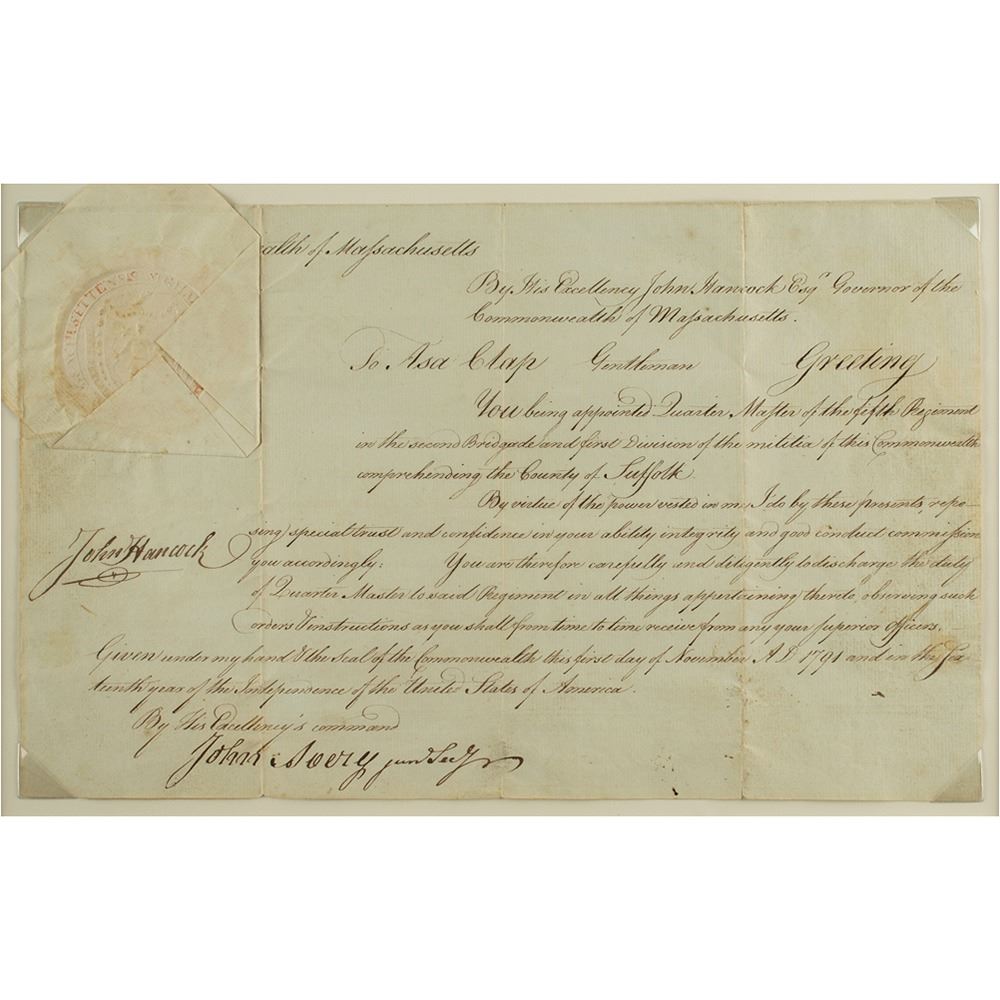 alth of Massachusetts
By His Excellency John Hancock Esqr Governor of the
Commonwealth of Massachusetts.
To Asa Clap Gentleman Greeting
You being appointed Quarter Master of the fifth Regiment
in the second Bridgade and first Division of the militia of this Commonwealth
comprehending the County of Suffolk
By virtue of the power vested in me I do by these presents, repo-
sing special trust and confidence in your ability integrity and good conduct commission
you accordingly: You are therefore carefully and deligently to discharge the duty
of Quarter Master to said Regiment in all things appertaining thereto, observing such
orders & instructions as you shall from time to time receive from any your superior officers.
John Hancock
Given under my hand & the seal of the Commonwealth this first day of November A D 1791 and in the Six
teenth year of the Independence of the United States of America.
By His Excellency's command
John Avery junr Secy